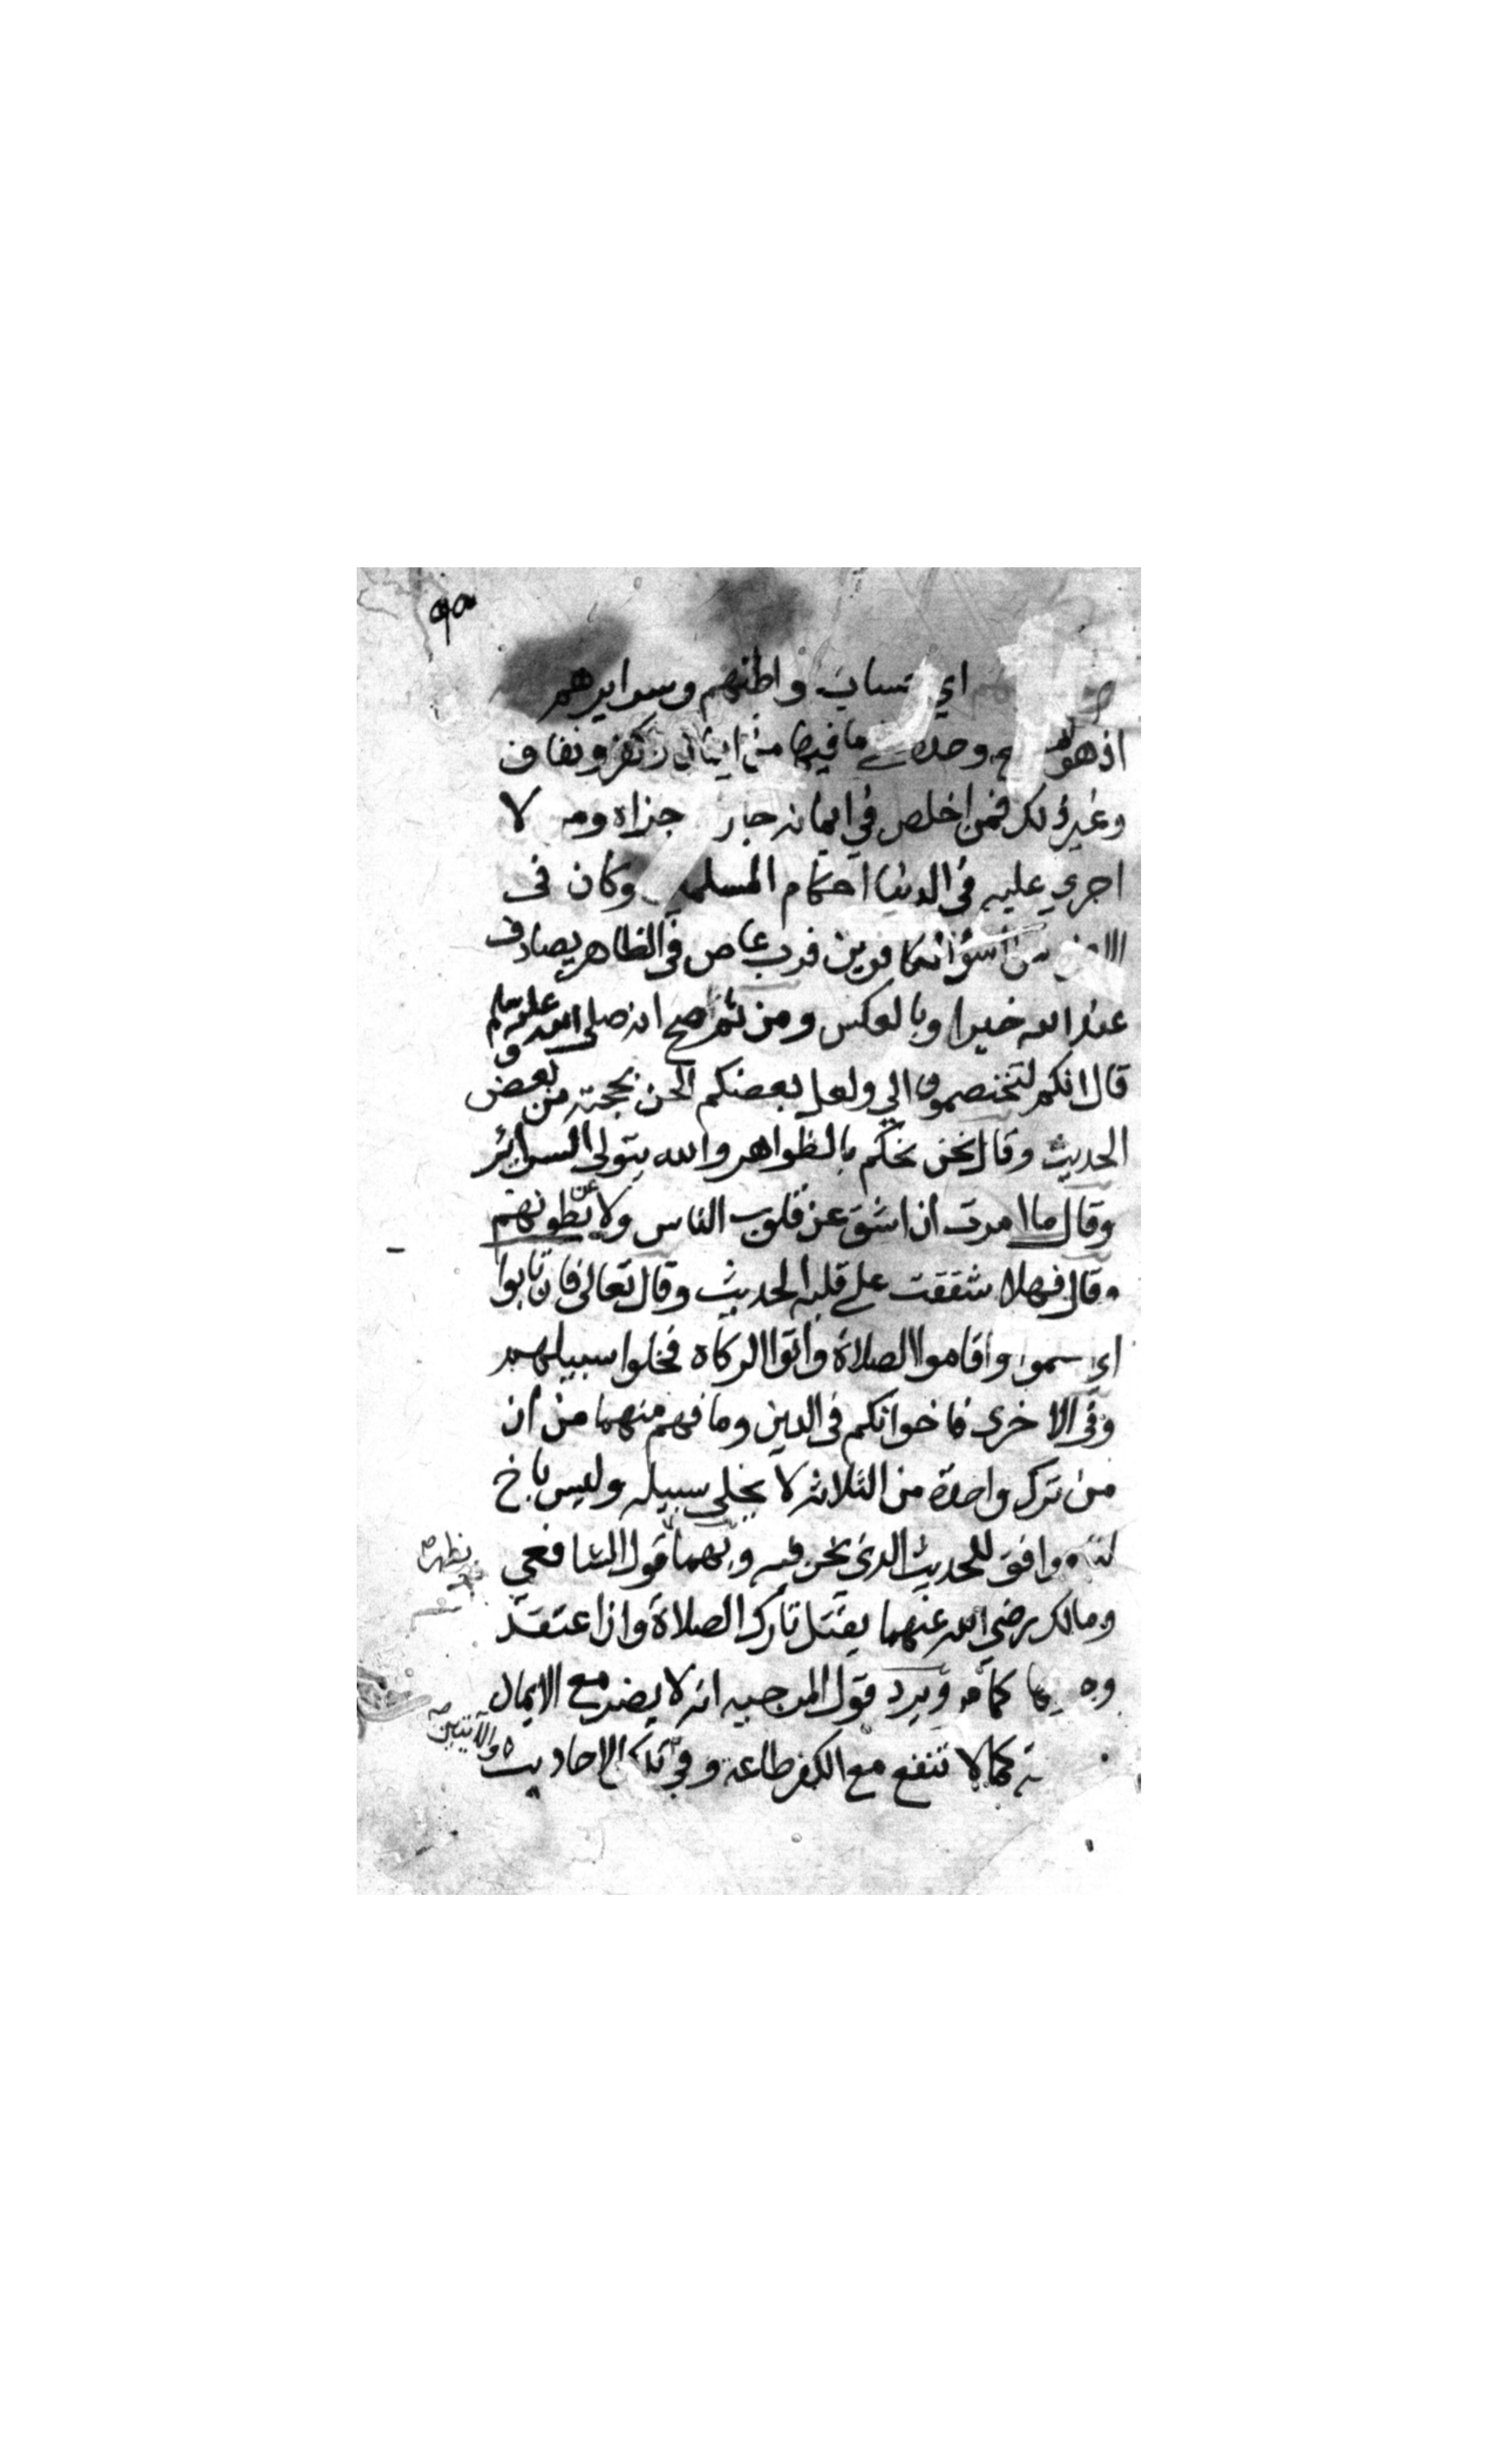 ٩٥
اي حساب بواطنهم وسرايرهم
اذ هو وحده ما فيها من ايمان وكفر ونفاق
وغير ذلك فمن اخلص في ايمانه جزاه ومن لا
اجري عليه في الدنيا احكام المسلمين وكان في
من اسؤا الكافرين فرب عاص في الظاهر يصادف
عند الله خيرا وبالعكس ومن ثم صح انه صلى الله عليه وسلم
قال انكم لتختصمون الي ولعل بعضكم الحن بحجته من بعض
الحديث وقال نحن نحكم بالظواهر والله يتولى السرائر
وقال ما امرت ان اشق عن قلوب الناس ولا عن بطونهم
وقال فهلا شققت على قلبه الحديث وقال تعالى فان تابوا
اي واقاموا الصلاة واتوا الزكاة فخلوا سبيلهم
وفي الاخرى فاخوانكم في الدين وما فهم منهما من ان
من ترك واحدة من الثلاثة لا يخلى سبيله وليس باخ
لنا موافق للحديث الذي نحن فيه وبهما قول الشافعي
ومالك رضي الله عنهما يقتل تارك الصلاة وان اعتقد
كما مر ويرد قول المرجيه انه لا يضر مع الايمان
كما لا تنفع مع الكفر طاعة وفي تلك الاحاديث
والآيتين